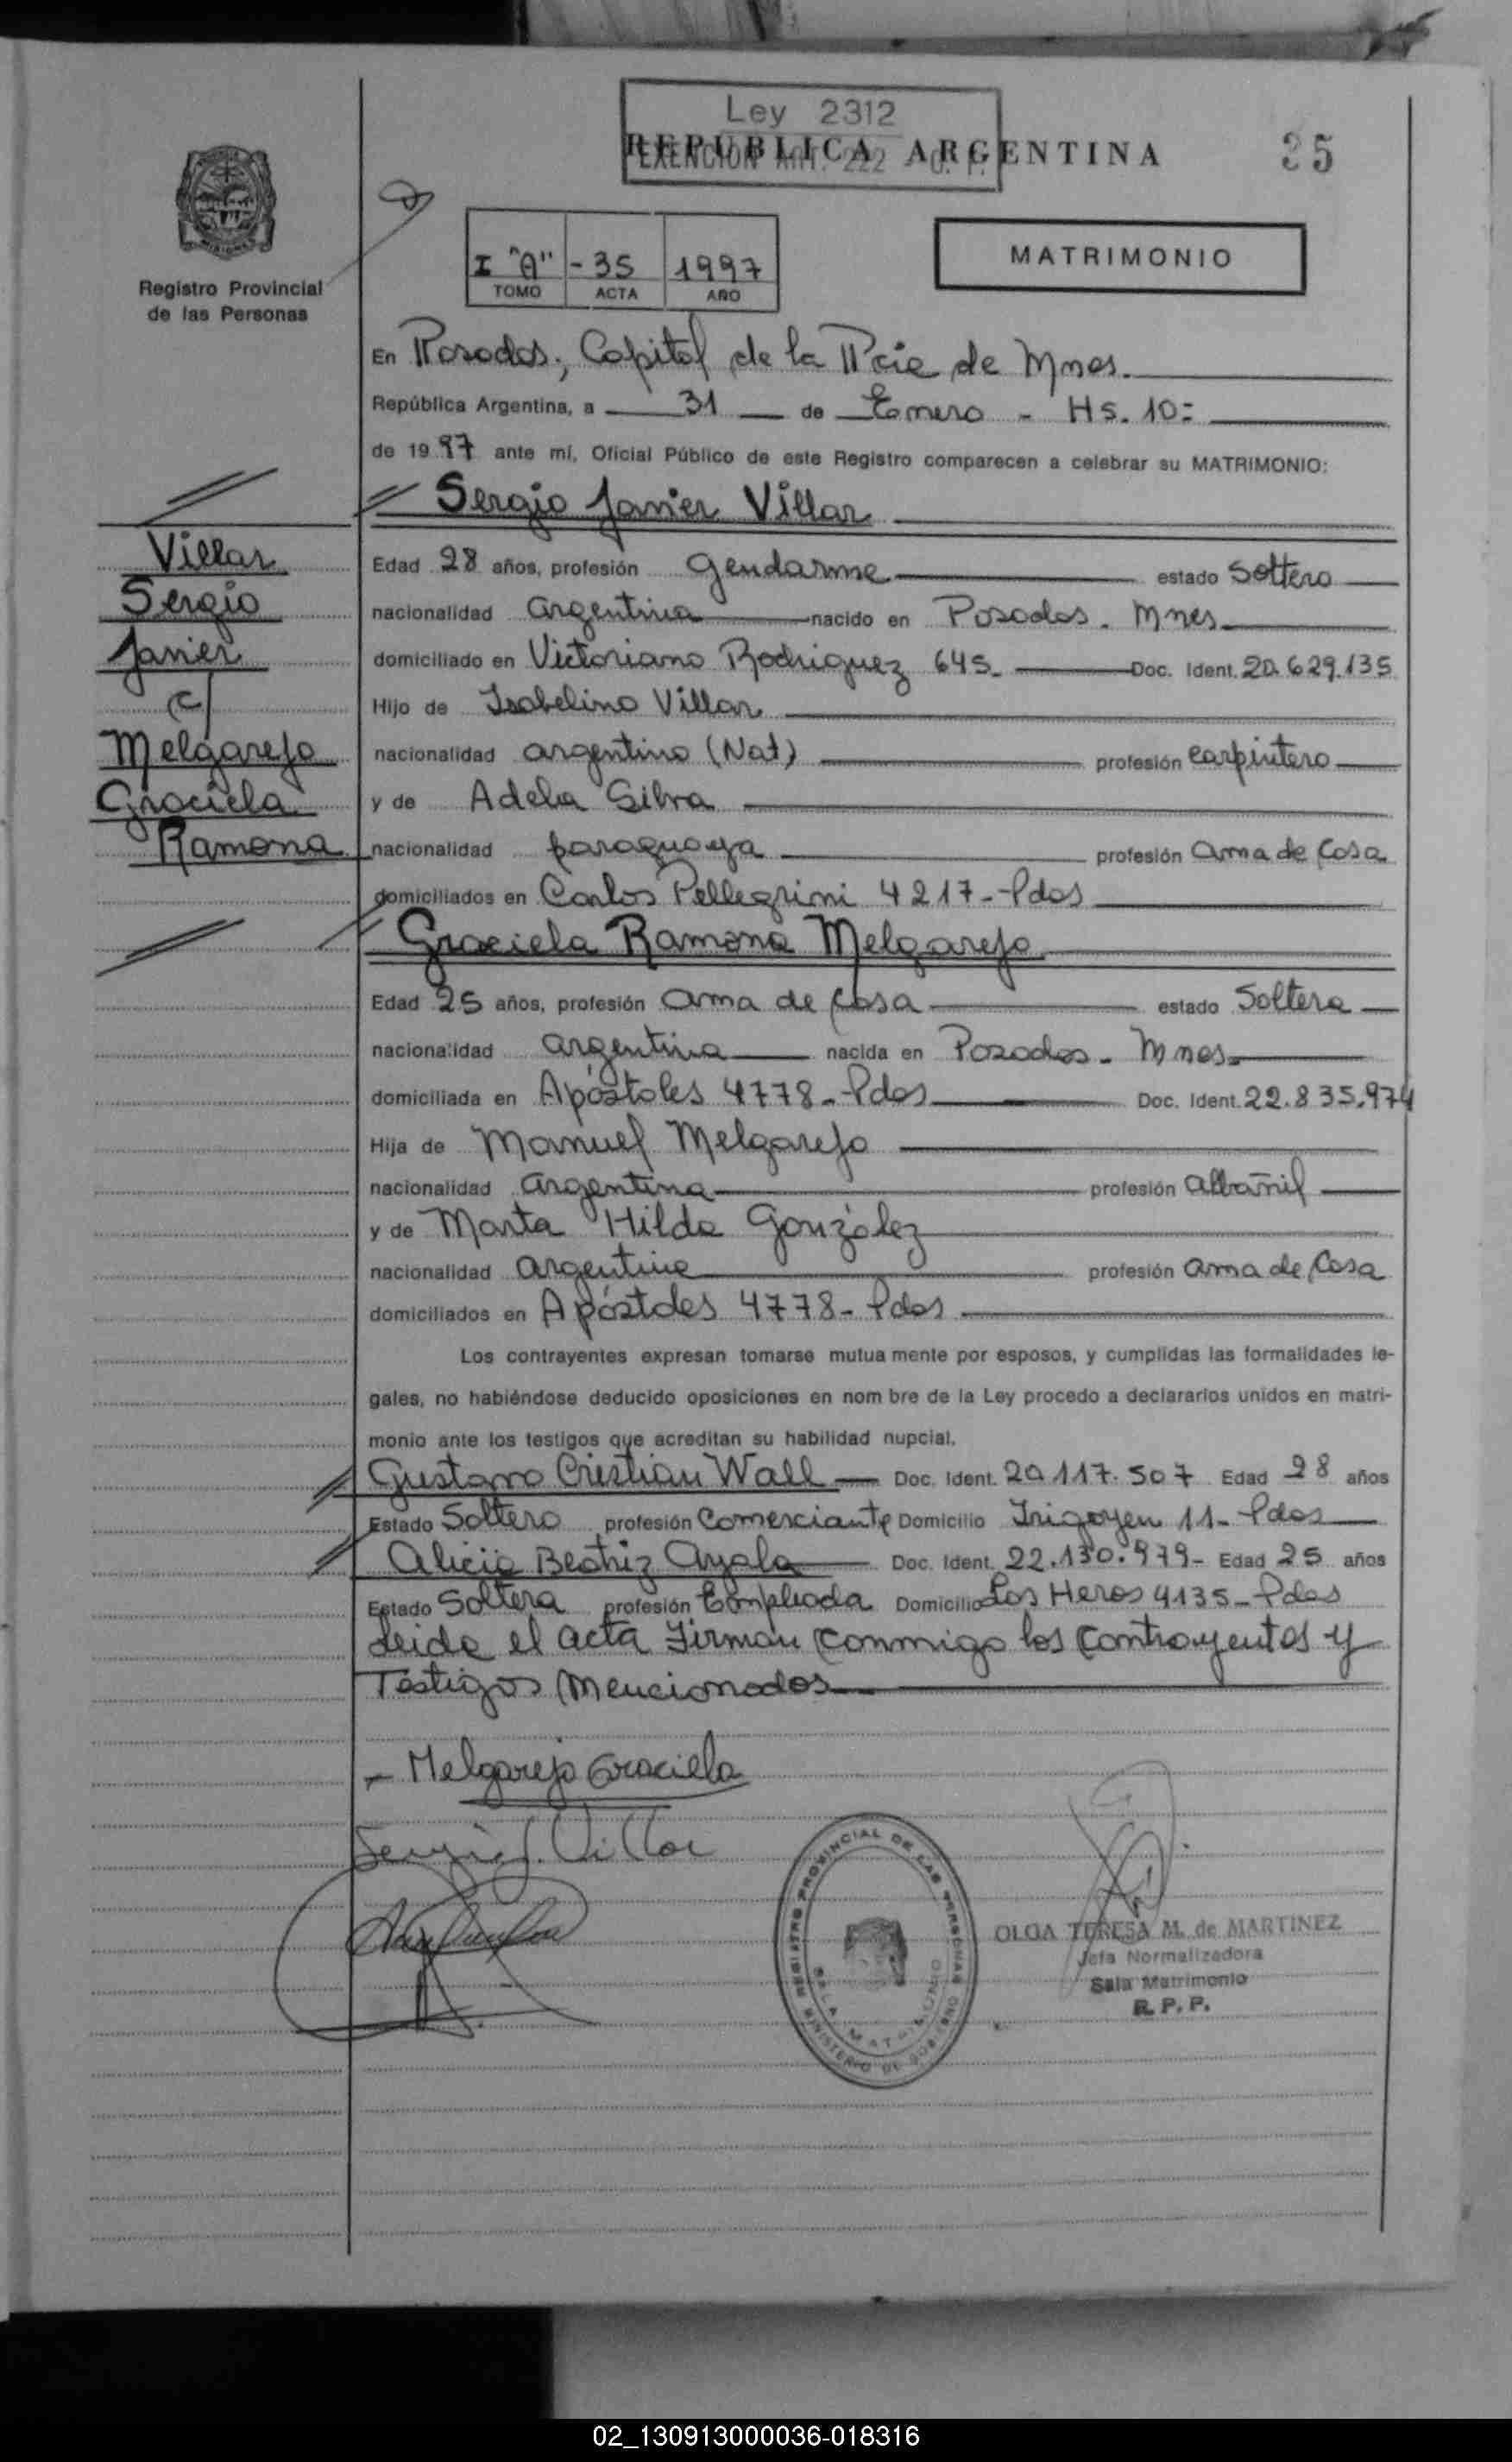 Ley 2312
REPUBLICA ARGENTINA
EXENCION ART. 222 C. F.
35
MISIONES
Registro Provincial
de las Personas
I "A" - 35 1997
TOMO ACTA AÑO
MATRIMONIO
En Posadas, Capital de la Pcia de Mnes.
República Argentina, a 31 de Enero - Hs. 10:
de 1997 ante mí, Oficial Público de este Registro comparecen a celebrar su MATRIMONIO:
Sergio Javier Villar
Villar
Sergio
Javier
c/
Melgarejo
Graciela
Ramona
Edad 28 años, profesión gendarme estado Soltero
nacionalidad argentina nacido en Posadas. Mnes.
domiciliado en Victoriano Rodriguez 645. Doc. Ident. 20.629.135
Hijo de Isabelino Villar
nacionalidad argentino (Nat) profesión carpintero
y de Adelia Silva
nacionalidad paraguaya profesión ama de Casa
domiciliados en Carlos Pellegrini 4217-Pdas
Graciela Ramona Melgarejo
Edad 25 años, profesión ama de Casa estado Soltera
nacionalidad argentina nacida en Posadas - Mnes.
domiciliada en Apóstoles 4778-Pdas Doc. Ident. 22.835.974
Hija de Manuel Melgarejo
nacionalidad argentina profesión albañil
y de Marta Hilda González
nacionalidad argentina profesión ama de Casa
domiciliados en Apóstoles 4778-Pdas
Los contrayentes expresan tomarse mutua mente por esposos, y cumplidas las formalidades le-
gales, no habiéndose deducido oposiciones en nom bre de la Ley procedo a declararlos unidos en matri-
monio ante los testigos que acreditan su habilidad nupcial.
Gustavo Cristian Wall Doc. Ident. 20.117.507 Edad 28 años
Estado Soltero profesión Comerciante Domicilio Irigoyen 11-Pdas
Alicia Beatriz Ayala Doc. Ident. 22.130.979- Edad 25 años
Estado Soltera profesión Empleada Domicilio Los Heros 4135-Pdas
Leida el acta firman conmigo los contrayentes y
Testigos mencionados
- Melgarejo Graciela
Sergio J. Villar
REGISTRO PROVINCIAL DE LAS PERSONAS
SALA MATRIMONIO
MINISTERIO DE GOBIERNO
OLGA TERESA M. de MARTINEZ
Jefa Normalizadora
Sala Matrimonio
R. P. P.
02_130913000036-018316